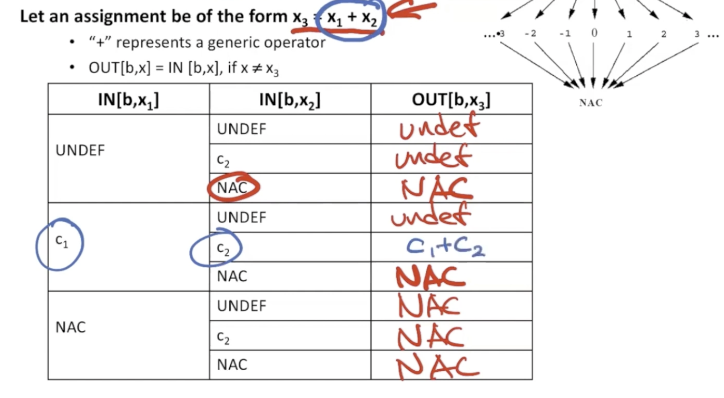 Let an assignment be of the form x₃ = x₁ + x₂
• "+" represents a generic operator
• OUT[b,x] = IN [b,x], if x ≠ x₃
...-3 -2 -1 0 1 2 3 ...
NAC
IN[b,x₁] IN[b,x₂] OUT[b,x₃]
UNDEF UNDEF undef
c₂ undef
NAC NAC
c₁ UNDEF undef
c₂ C₁+C₂
NAC NAC
NAC UNDEF NAC
c₂ NAC
NAC NAC